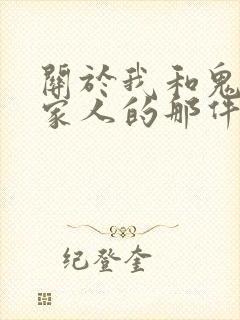 關於我和鬼
家人的那件
纪登奎